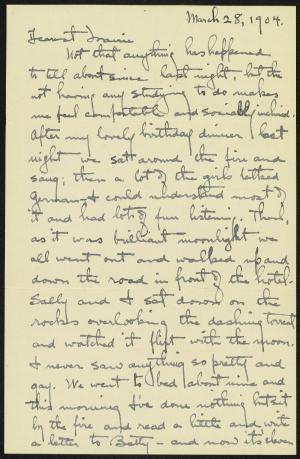 March 28, 1904.
Dearest Mamie
Not that anything has happened
to tell about since last night, but the
not having any studying to do makes
me feel comfortable and socially inclined.
After my lovely birthday dinner last
night we sat around the fire and
sang; then a lot of the girls talked
German – I could understand most of
it and had lots of fun listening. Then,
as it was brilliant moonlight we
all went out and walked up and
down the road in front of the hotel.
Sally and I sat down on the
rocks overlooking the dashing torrent
and watched it flirt with the moon.
I never saw anything so pretty and
gay. We went to bed about nine and
this morning I've done nothing but sit
by the fire and read a little and write
a letter to Betty – and now it's eleven